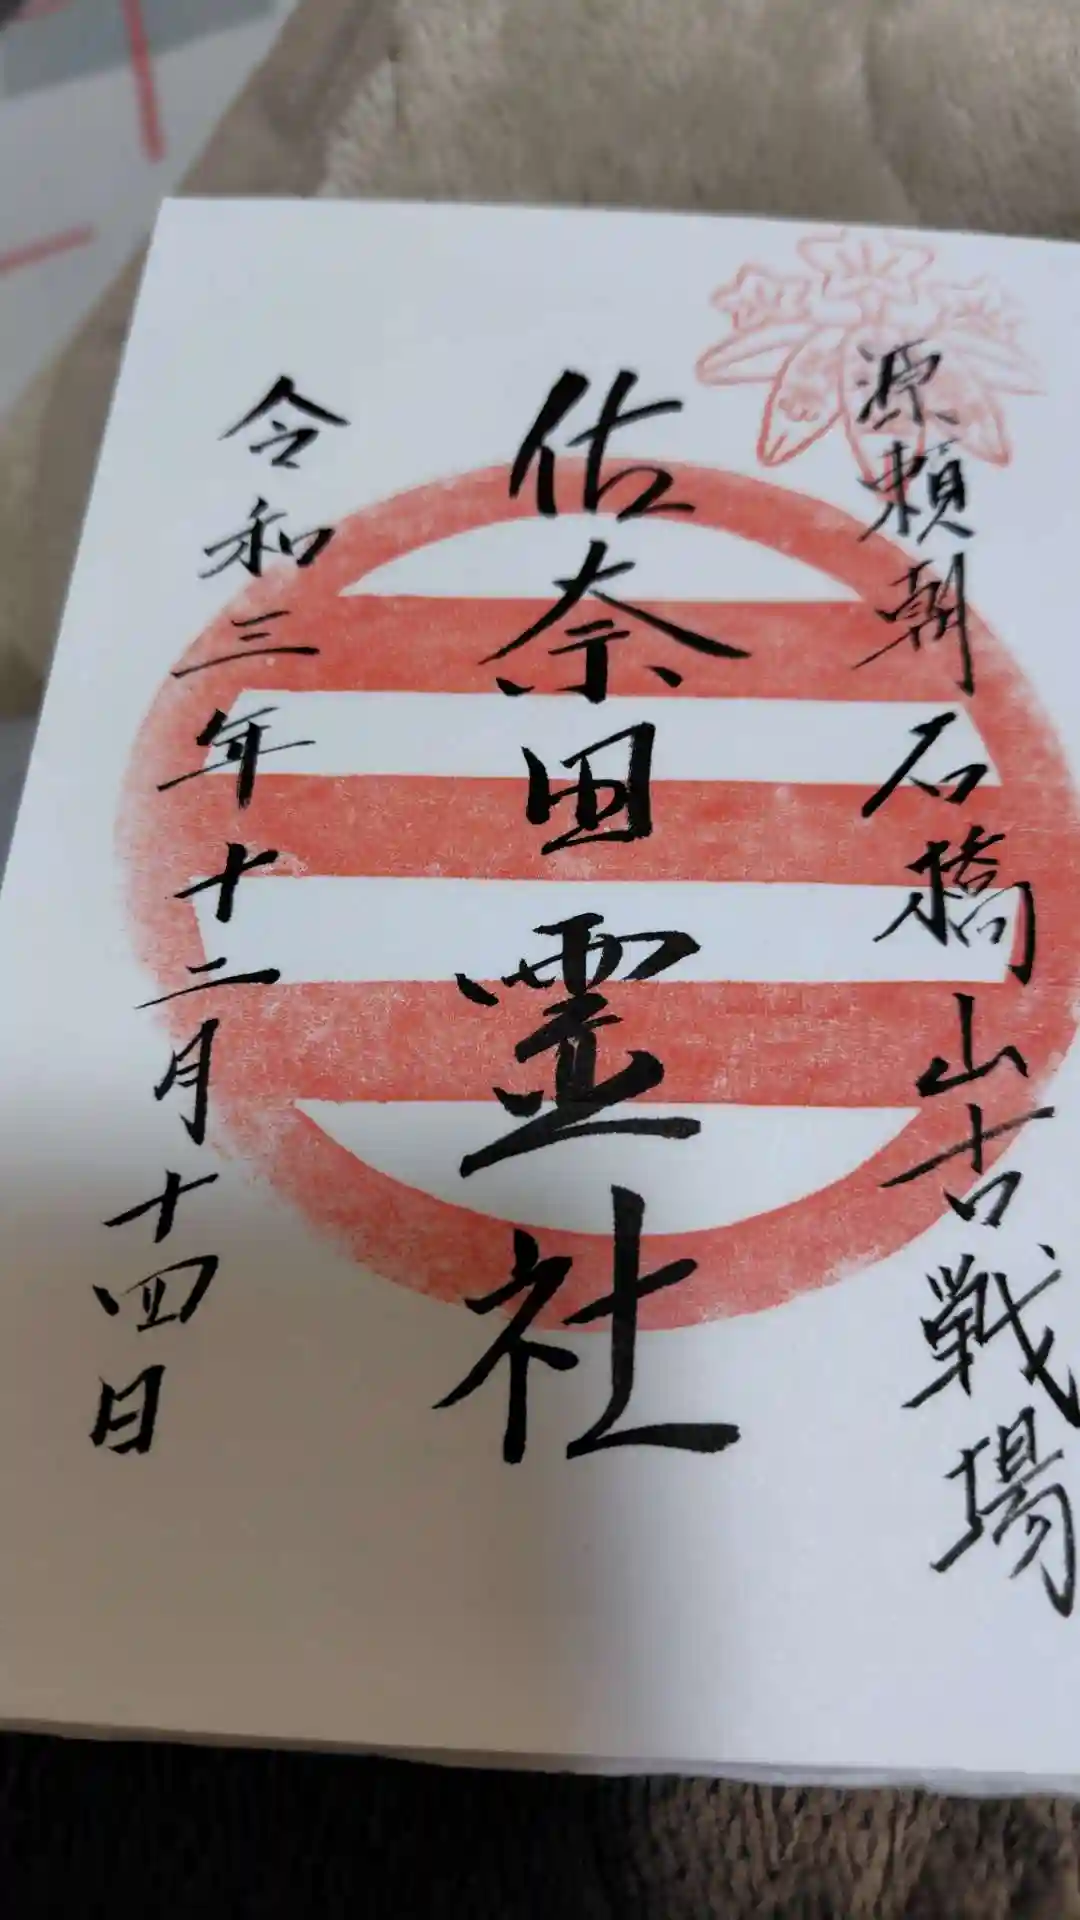 源頼朝 石橋山古戦場
佐奈田霊社
令和三年十二月十四日